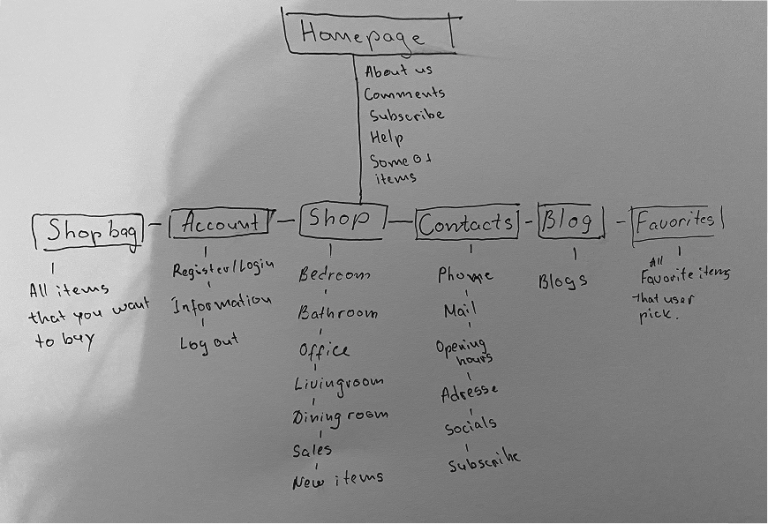 Homepage
About us
Comments
Subscribe
Help
Some of
items
Shop bag
Account
Shop
Contacts
Blog
Favorites
All items
that you want
to buy
Register/Login
Information
Log out
Bedroom
Bathroom
Office
Livingroom
Dining room
Sales
New items
Phone
Mail
Opening
hours
Adresse
Socials
Subscribe
Blogs
All
Favorite items
that user
pick.